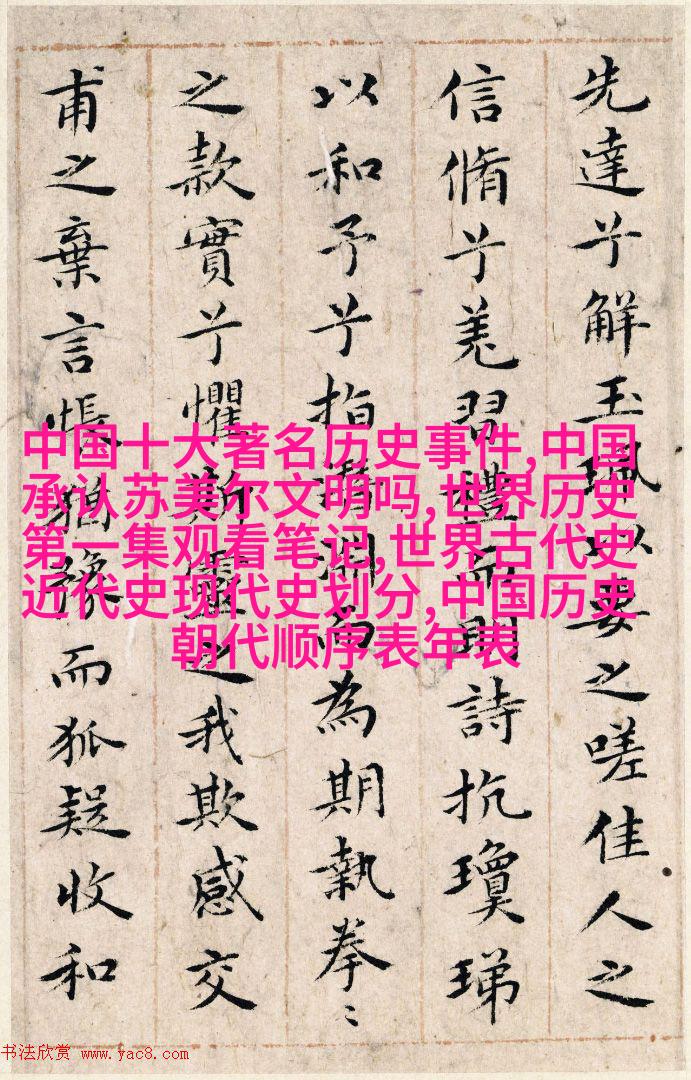 先達兮解玉珮以要之嗟佳人之
信脩兮羌習禮而明詩抗瓊珶
以和予兮指潛淵而為期執拳〻
之款實兮懼斯靈之我欺感交
甫之棄言悵猶豫而狐疑收和
中国十大著名历史事件,中国
承认苏美尔文明吗,世界历史
第一集观看笔记,世界古代史
近代史现代史划分,中国历史
朝代顺序表年表
书法欣赏 www.yac8.com